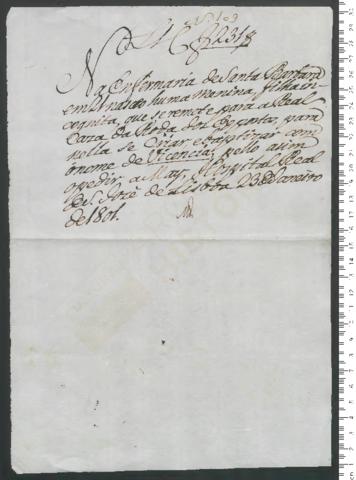 Na Enfermaria de Santa Barbara
em nasceo huma menina, filha in-
cognita, que se remete para a Real
Caza da Roda dos Expostos, para
nella se criar e baptizar com
o nome de Vicencia, pello asim
o pedir a May. Hospital Real
de S. Jozé de Lisboa 23 de Janeiro
de 1801.